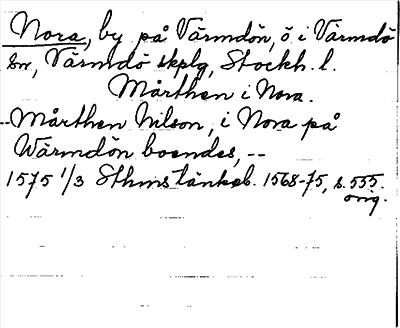 Nora, by på Värmdön, ö i Värmdö
sn, Värmdö skplg, Stockh. l.
Mårthen i Nora.
--Mårthen Nilson, i Nora på
Wärmdön boendes, --
1575 1/3 Sthms tänkeb. 1568-75, s. 555.
orig.